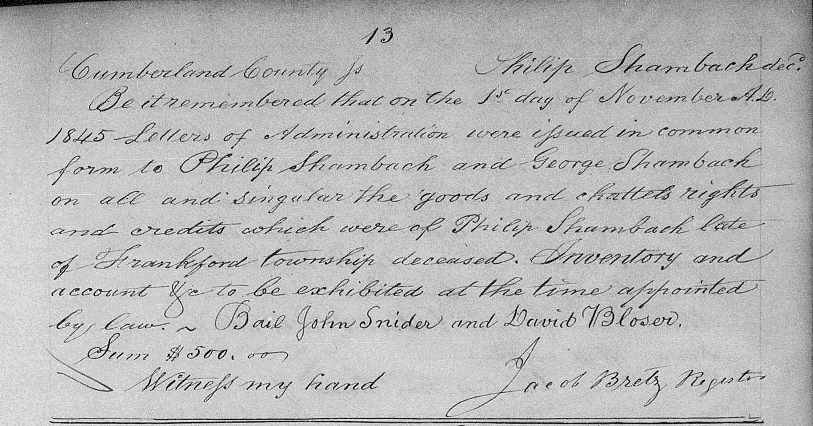 13
Cumberland County ſs Philip Shambach decd.
Be it remembered that on the 1st day of November A.D.
1845 Letters of Administration were iſsued in common
form to Philip Shambach and George Shambach
on all and singular the goods and chattels rights
and credits which were of Philip Shambach late
of Frankford township deceased. Inventory and
account &c to be exhibited at the time appointed
by law. ~ Bail John Snider and David Bloser.
Sum $500.00
Witneſs my hand Jacob Bretz Register